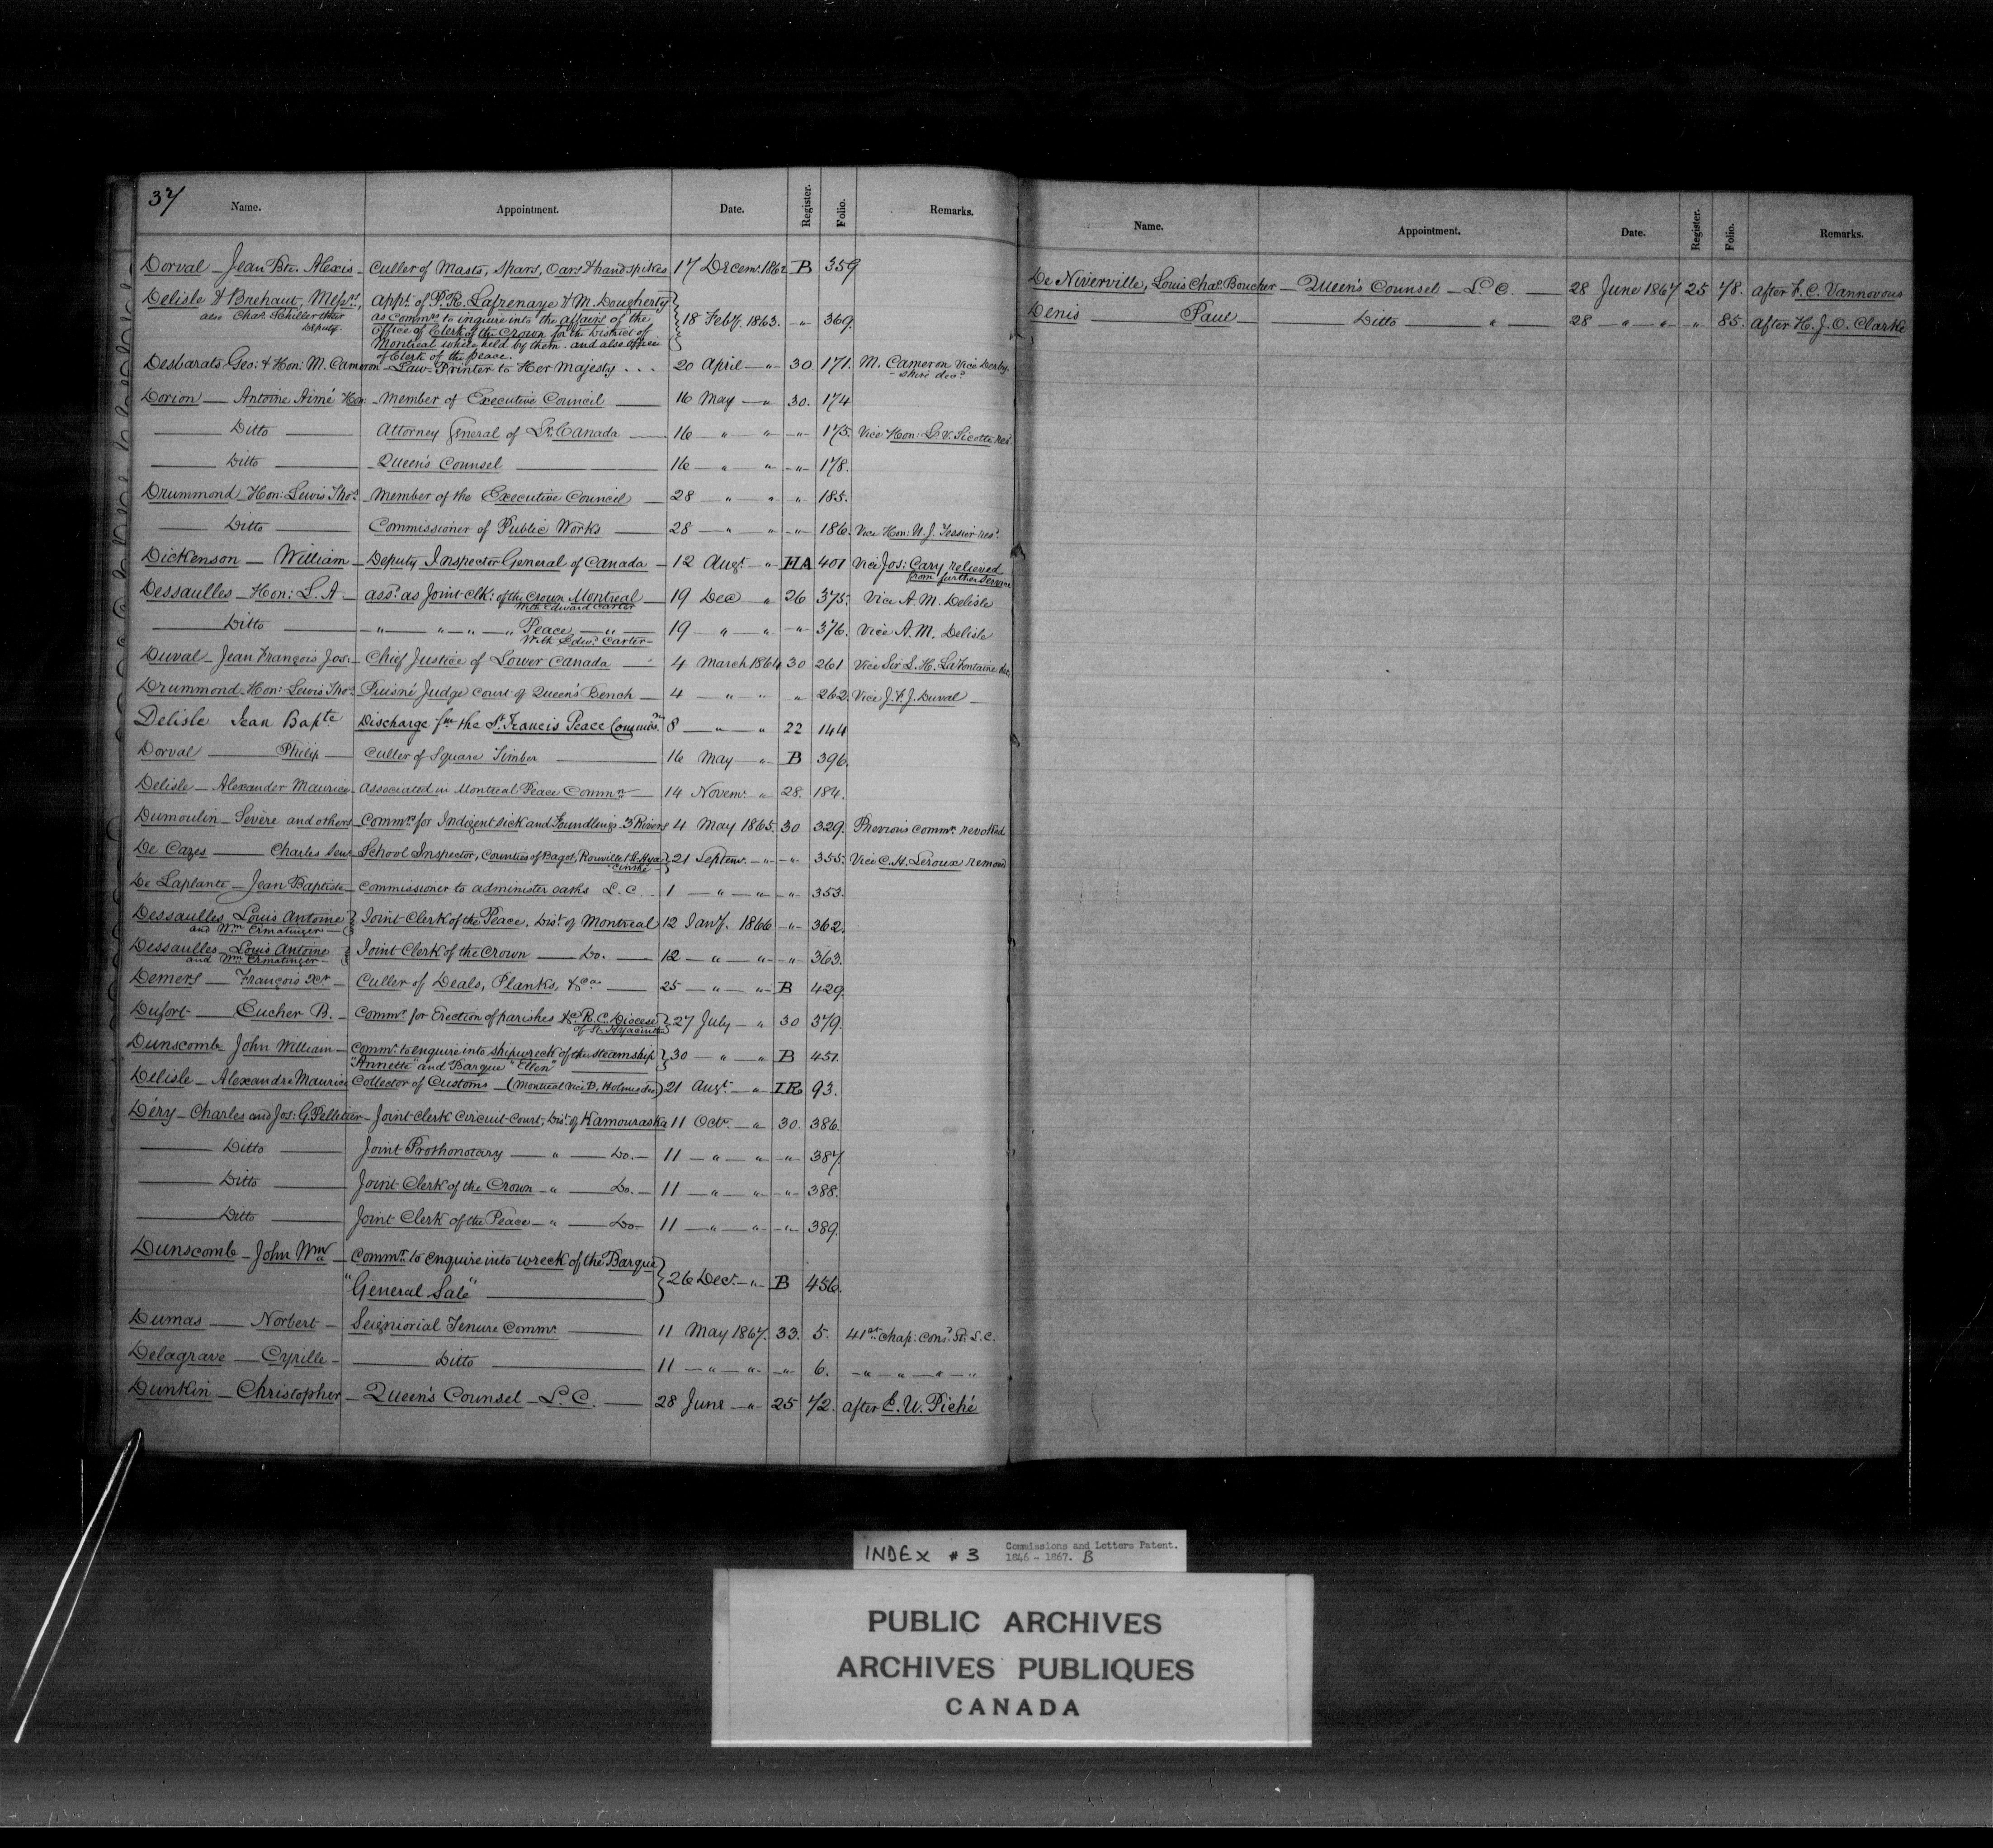 37
Name. Appointment. Date. Register. Folio. Remarks.
Dorval — Jean Bte. Alexis — Culler of Masts, Spars, Oars & handspikes 17 Decem. 1862 B 359
Delisle & Brehaut, Messrs, Appt. of P. R. Lafrenaye & M. Dougherty
also Chas. Schiller their as Commrs to inquire into the affairs of the 18 Feby. 1863. — " — 369.
Deputy. office of Clerk of the Crown for the District of
Montreal while held by them. and also office
of Clerk of the peace.
Desbarats Geo: & Hon: M. Cameron — Law Printer to Her Majesty . . . 20 April — " — 30 171. M. Cameron Vice Derby-
shire decd.
Dorion — Antoine Aimé Hon. — Member of Executive Council — 16 May — " 30. 174
— Ditto — Attorney General of Lr. Canada — 16 — " " — " — 175. Vice Hon: L. V. Sicotte res.
— Ditto — Queen's Counsel — 16 — " " — " — 178.
Drummond — Hon: Lewis Thos. — Member of the Executive Council — 28 — " " " 185.
— Ditto — Commissioner of Public Works — 28 — " " — " — 186. Vice Hon: U. J. Tessier res.
Dickenson — William — Deputy Inspector General of Canada — 12 Augt. — " HA 401 Vice Jos: Cary relieved
from further Service
Dessaulles — Hon: L. A. — ass. as Joint Clk: of the Crown Montreal — 19 Dec " 26 375. Vice A. M. Delisle
With Edward Carter
— Ditto — " — " — " — " Peace — " — 19 — " " — " — 376. Vice A. M. Delisle
With Edwd. Carter —
Duval — Jean François Jos: — Chief Justice of Lower Canada — 4 March 1864 30 261 Vice Sir L. H. LaFontaine dec.
Drummond — Hon: Lewis Thos. — Puisné Judge Court of Queen's Bench — 4 — " " " 262. Vice J. F. J. Duval —
Delisle Jean Bapte Discharge fm the St. Francis Peace Commisn. 8 — " — " 22 144
Dorval — Philip — Culler of Square Timber — 16 May — " B 396.
Delisle — Alexander Maurice — Associated in Montreal Peace Commn — 14 Novem. " 28. 184.
Dumoulin — Sévère and others — Commrs for Indigent Sick and Foundlings. 3 Rivers 4 May 1865. 30 329. Previous commn. revoked
De Cazes — Charles Senr. — School Inspector, Counties of Bagot, Rouville & St. Hya- 21 Septem. — " — " — 355. Vice C. H. Leroux removd
cinthe —
De Laplante — Jean Baptiste — Commissioner to administer oaths L. C. . 1 — " — " — " — 353.
Dessaulles, Louis Antoine Joint Clerk of the Peace. Dist. of Montreal 12 Jany. 1866 — " — 362.
and Wm Ermatinger —
Dessaulles — Louis Antoine Joint Clerk of the Crown — Do. — 12 — " — " — " — 363.
and Wm Ermatinger —
Demers — François Xr — Culler of Deals, Planks, &ca — 25 — " — " B 429.
Dufort — Eucher B. — Commr for Erection of parishes &c. R. C. Diocese 27 July — " 30 379.
of St. Hyacinthe
Dunscomb John William — Commr. to enquire into shipwreck of the steamship 30 — " — " B 451.
"Annette" and Barque "Ellen" —
Delisle — Alexandre Maurice Collector of Customs — (Montreal Vice B. Holmes dec) 21 Augt. — " IR 93.
Déry — Charles and Jos: G. Pelletier — Joint Clerk Circuit Court, Dist. of Kamouraska 11 Octr. — " 30. 386.
— Ditto — Joint Prothonotary — " — Do. — 11 — " — " — " — 387.
— Ditto — Joint Clerk of the Crown — " — Do. — 11 — " — " — " — 388.
— Ditto — Joint Clerk of the Peace — " — Do — 11 — " — " — " — 389.
Dunscomb — John Wm — Commr. to enquire into wreck of the Barque
"General Sale" — 26 Decr. — " B 456.
Dumas — Norbert — Seigniorial Tenure Commr. — 11 May 1867. 33. 5. 41st Chap: Cons. St. L. C.
Delagrave — Cyrille — — Ditto — 11 — " — " — " — 6. — " — " — " — "
Dunkin — Christopher — Queen's Counsel — L. C. — 28 June — " 25 72. after E. U. Piché
Name. Appointment. Date. Register. Folio. Remarks.
De Niverville, Louis Chas. Boucher — Queen's Counsel — L. C. — 28 June 1867 25 78. after F. C. Vannovous
Denis Paul — Ditto — " — 28 — " — " — " 85. After H. J. O. Clarke
INDEX #3 Commissions and Letters Patent.
1846 - 1867. B
PUBLIC ARCHIVES
ARCHIVES PUBLIQUES
CANADA